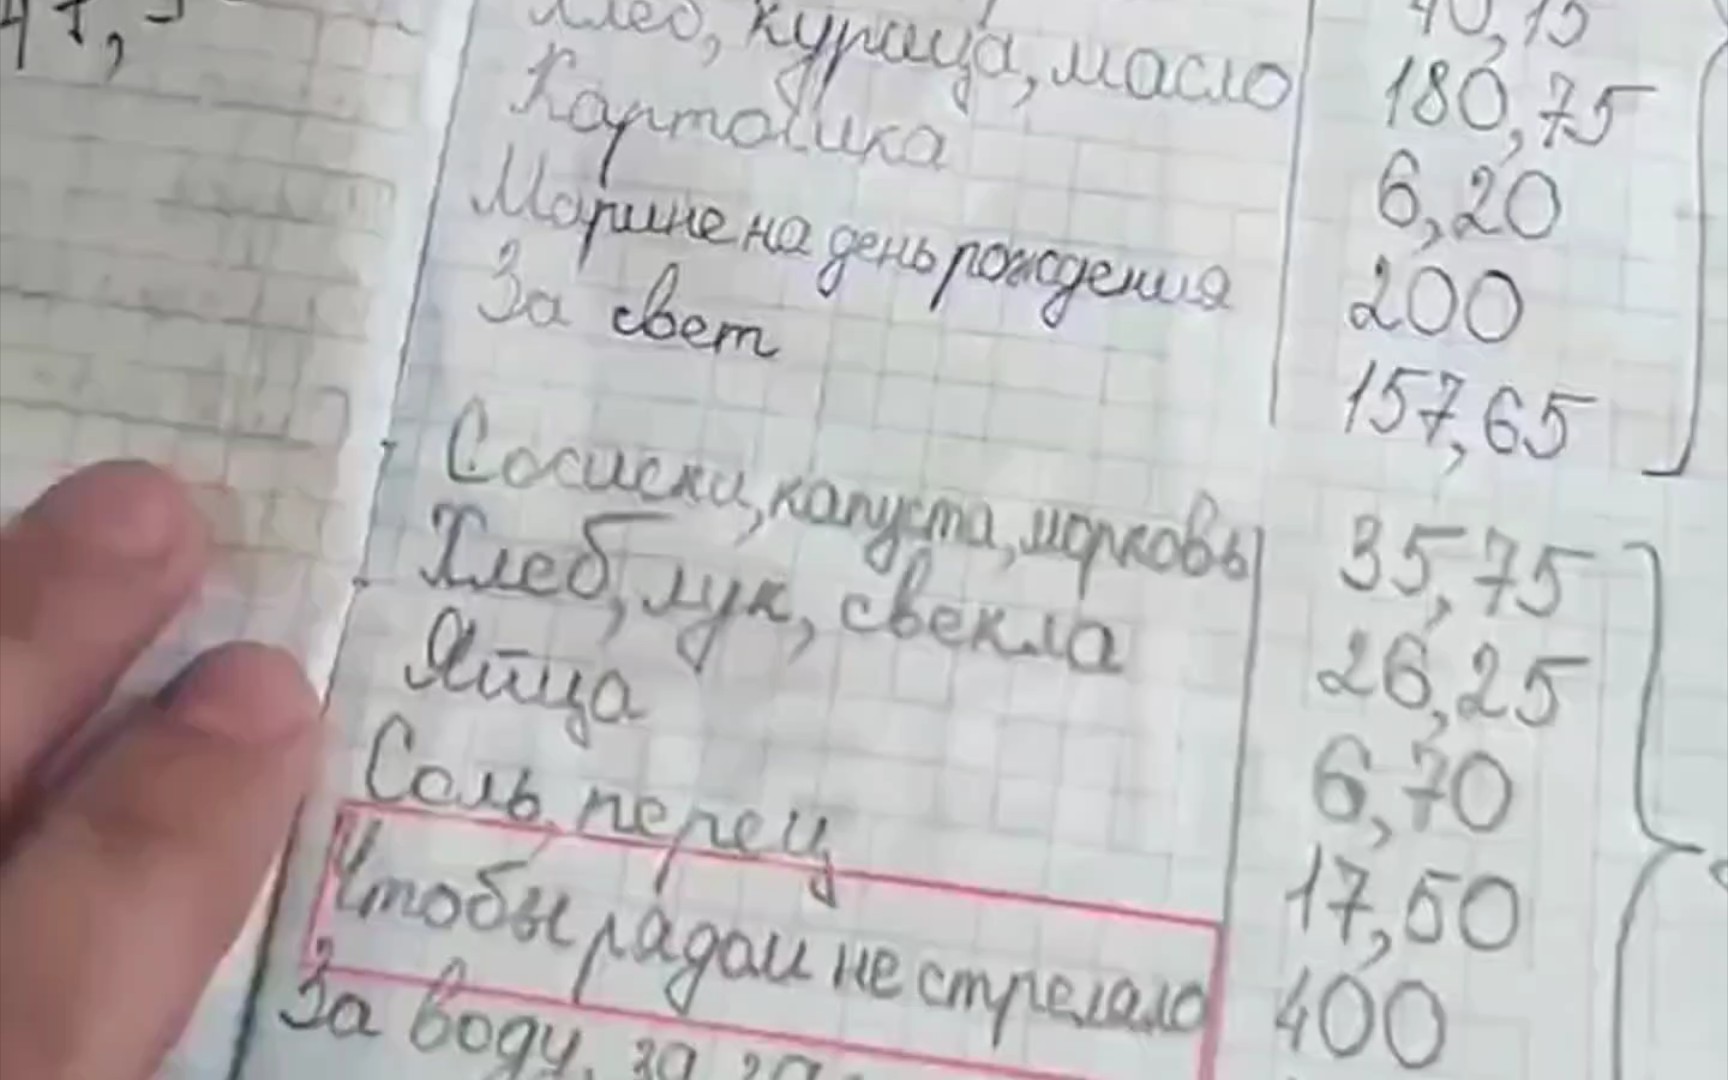 Хлеб, курица, масло 180,75
Картошка 6,20
Марине на день рождения 200
За свет 157,65
Сосиски, капуста, морковь 35,75
Хлеб, лук, свекла 26,25
Яйца 6,70
Соль, перец 17,50
Чтобы рядом не стреляло 400
За воду, за